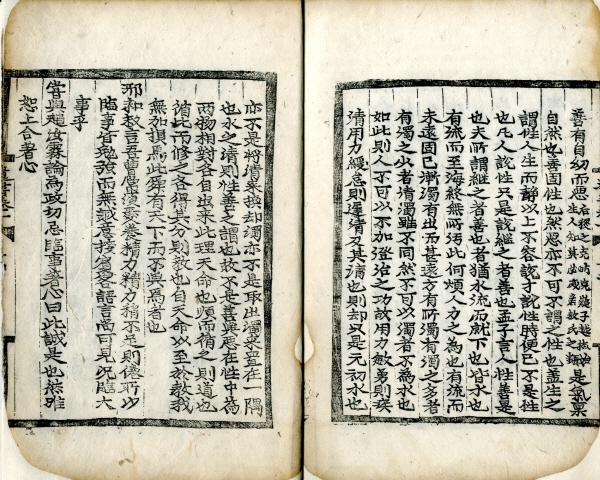 善有自幼而惡是氣稟
自然也善固性也然惡亦不可不謂之性也盖生之
謂性人生而静以上不容說才說性時便已不是性
也凡人說性只是說繼之者善也孟子言人性善是
也夫所謂繼之者善也者猶水流而就下也皆水也
有流而至海終無所汚此何煩人力之為也有流而
未遠固已漸濁有出而甚遠方有所濁有濁之多者
有濁之少者清濁雖不同然不可以濁者不為水也
如此則人不可以不加澄治之功故用力敏勇則疾
清用力緩怠則遲清及其清也則却只是元初水也
亦不是將清來換却濁亦不是取出濁來置在一隅
也水之清則性善之謂也故不是善與惡在性中為
兩物相對各自出來此理天命也順而循之則道也
循此而修之各得其分則教也自天命以至於教我
無加損焉此舜有天下而不與焉者也
邢和叔言吾曹常須愛養精力精力稍不足則倦所以
臨事皆勉強而無誠意接賓客語言尚可見况臨大
事乎
嘗與趙汝霖論為政切忌臨事著心曰此誠是也然唯
恕上合著心